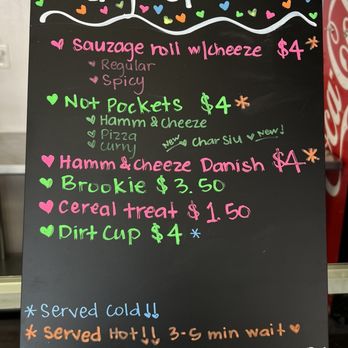 ♥ Sauzage roll w/cheeze $4*
♥ Regular
♥ Spicy
♥ Not Pockets $4*
♥ Hamm & cheeze
♥ Pizza
♥ Curry NEW ♥ Char Siu ♥ NEW!
♥ Hamm & Cheeze Danish $4*
♥ Brookie $3.50
♥ Cereal treat $1.50
♥ Dirt Cup $4 *
* Served Cold!!
* Served Hot!! 3-5 min wait ♥